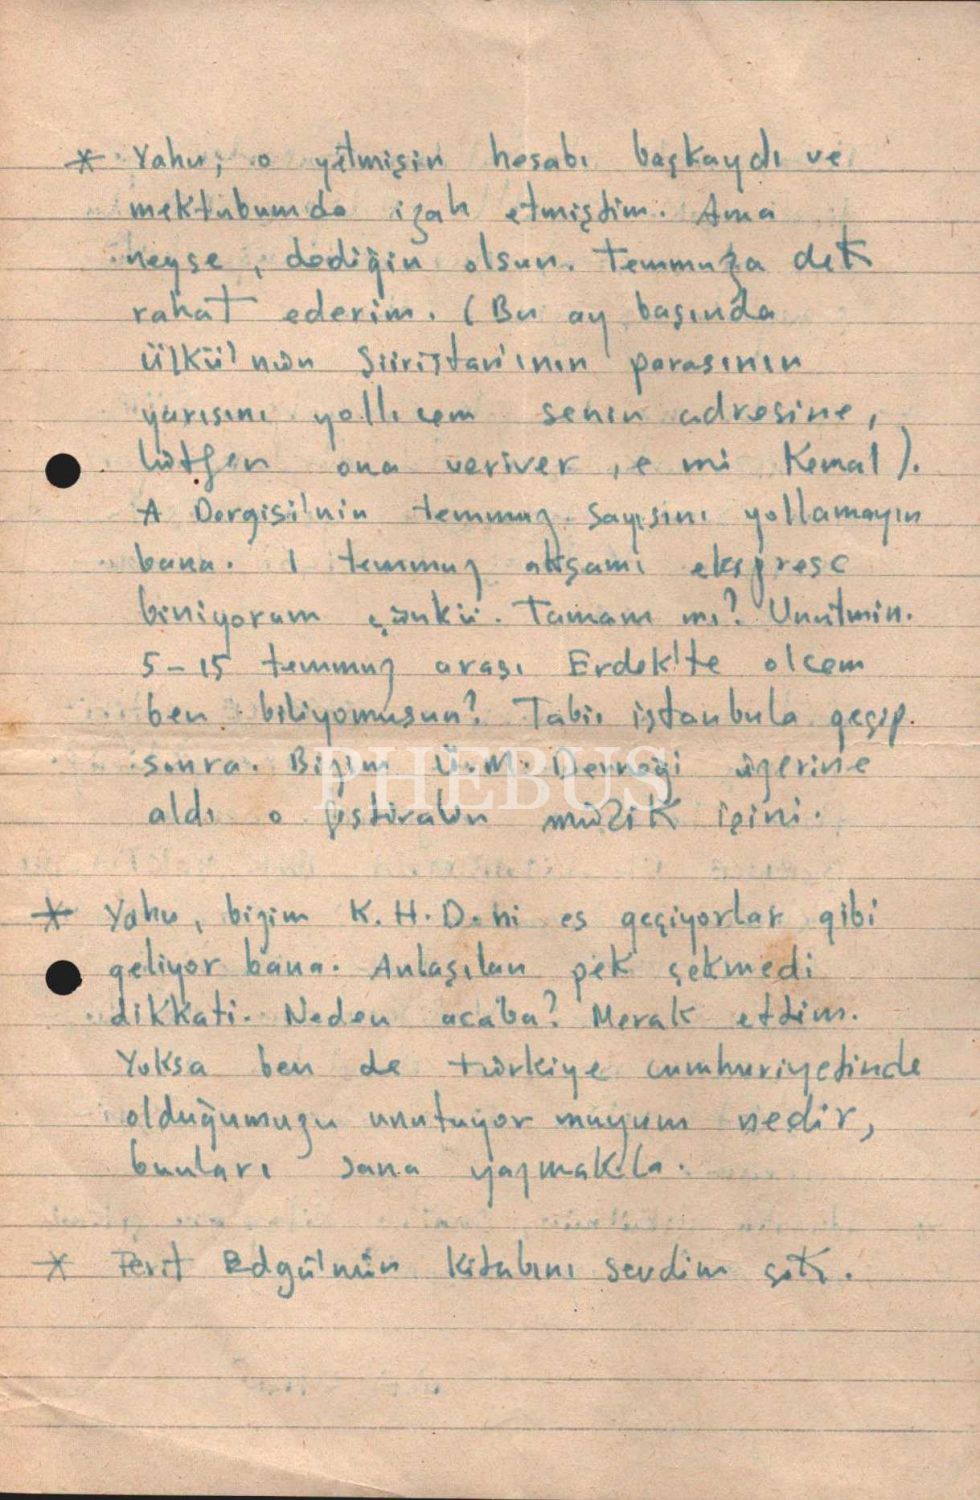 * Yahu, o yetmişin hesabı başkaydı ve
mektubumda izah etmiştim. Ama
neyse, dediğin olsun. Temmuza dek
rahat ederim. (Bu ay başında
Ülkü'nün Şiiristan'ının parasının
yarısını yollıcam senin adresine,
lütfen ona veriver, e mi Kemal).
A Dergisi'nin temmuz sayısını yollamayın
bana. 1 temmuz akşamı ekspresc
biniyorum çünkü. Tamam mı? Unutmin.
5-15 temmuz arası Erdek'te olcem
ben biliyomusun? Tabii istanbula geçip
sonra. Bizim Ü.M. Derneği üzerine
aldı o festivalin müzik işini.
PHEBUS
* Yahu, bizim K.H.D.ni es geçiyorlar gibi
geliyor bana. Anlaşılan pek çekmedi
dikkati. Neden acaba? Merak ettim.
Yoksa ben de türkiye cumhuriyetinde
olduğumuzu unutuyor muyum nedir,
bunları sana yazmakla.
* Ferit Edgü'nün kitabını sevdim çok.